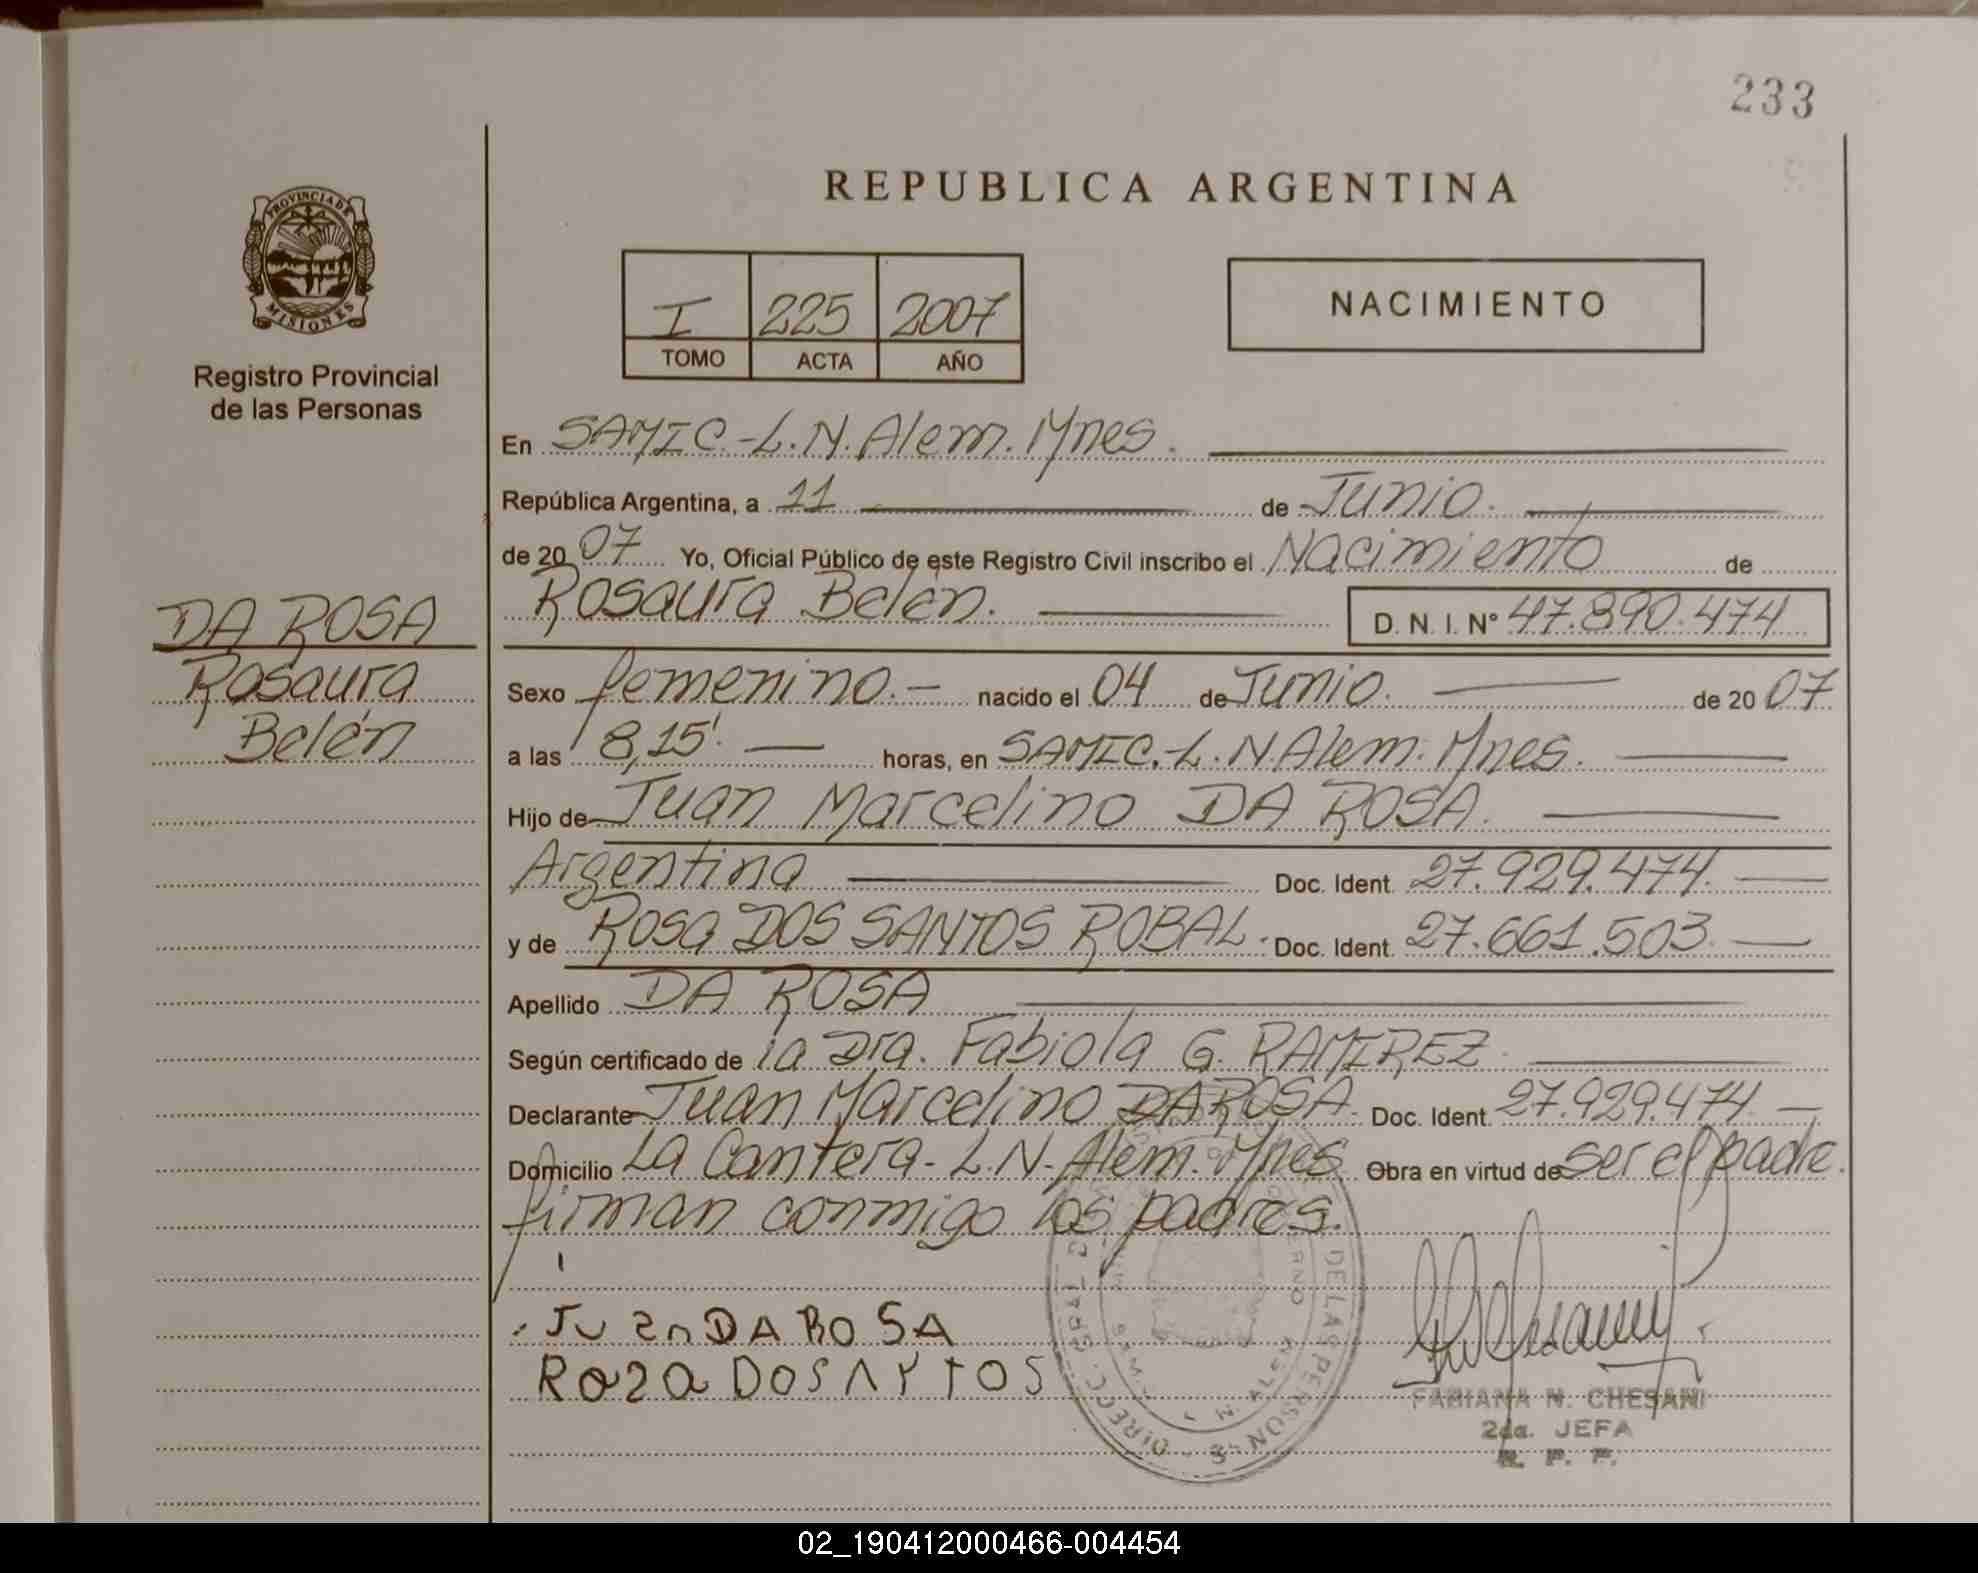 233
REPUBLICA ARGENTINA
PROVINCIA DE
MISIONES
Registro Provincial
de las Personas
I 225 2007
TOMO ACTA AÑO
NACIMIENTO
En SAMIC.-L.N.Alem.Mnes.
República Argentina, a 11 de Junio.
de 20 07 Yo, Oficial Público de este Registro Civil inscribo el Nacimiento de
Rosaura Belén. D. N. I. N° 47.890.474
DA ROSA
Rosaura
Belén
Sexo femenino.- nacido el 04 de Junio. de 20 07
a las 8,15'. horas, en SAMIC.-L.N.Alem.Mnes.
Hijo de Juan Marcelino DA ROSA.
Argentina Doc. Ident. 27.929.474.
y de Rosa DOS SANTOS ROBAL. Doc. Ident. 27.661.503.
Apellido DA ROSA
Según certificado de la Dra. Fabiola G. RAMIREZ.
Declarante Juan Marcelino DA ROSA. Doc. Ident. 27.929.474
Domicilio La Cantera-L.N-Alem.Mnes Obra en virtud de ser el padre.
firman conmigo los padres.
Juan DA ROSA
Roza DOSAYTOS
FABIANA N. CHESANI
2da. JEFA
R. P. P.
02_190412000466-004454